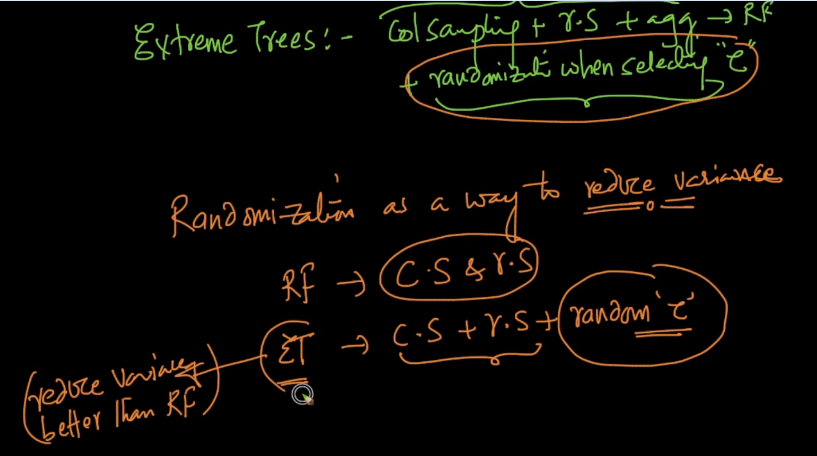 Extreme Trees:- Col sampling + r.S + agg → RF
+ randomizati when selecting "τ"
Randomization as a way to reduce variance
RF → C.S & r.S
ET → C.S + r.S + random 'τ'
(reduce variance
better than RF)